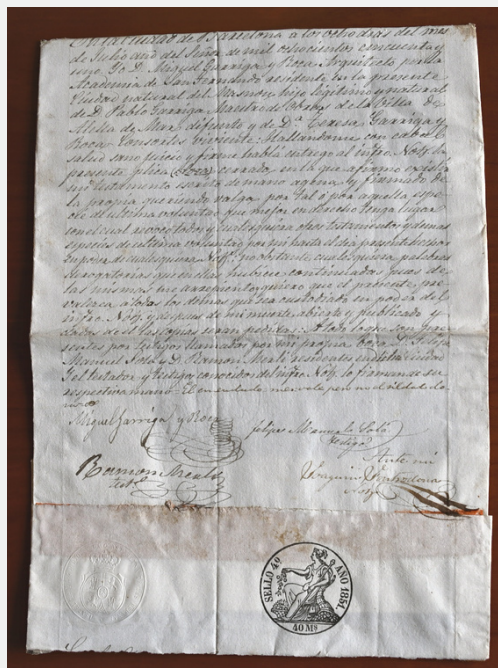 En la Ciudad de Barcelona a los ocho dias del mes
de Julio año del Señor de mil ochocientos cincuenta y
uno. Yo D. Miguel Garriga y Roca Arquitecto por la
Academia de San Fernando residente en la presente
Ciudad natural del Masnou hijo legitimo y natural
de D. Pablo Garriga, Maestro de Obras de la Villa de
Alella de Mar, difunto y de Dª Teresa Garriga y
Roca Consortes viviente: Hallandome con cabal
salud sano juicio y firme habla entrego al infro. Notº la
presente plica cerrada, en la que afirmo existir
mi testamento escrito de mano agena, y firmado de
la propia queriendo valga por tal ó por aquella espe-
cie de ultima voluntad que mejor en derecho tenga lugar
con el cual revoco todos y cualesquiera otros testamentos y demas
especies de ultima voluntad por mi hasta el dia presente hechos
en poder de cualesquiera Notº, no obstante cualesquiera palabras
derogatorias que en ellas hubiere continuadas pues de
las mismas me arrepiento y quiero que el presente pre-
valezca á todos los demas que sea custodiado en poder del
infro. Notº y despues de mi muerte abierto y publicado y
A todo lo que son pre-
sentes por testigos llamados por mi propia boca D. Felipe
Manuel Solá y D. Ramon Merli residentes en dicha Ciudad
Y el testador y testigos conocidos del infro. Notº lo firman de su
respectiva mano. El enmendado
Miguel Garriga y Roca
Felipe Manuel Solá
testigo
Ramon Merli
testº
Ante mi
Joaquin
Notº
SELLO 4º AÑO 1851.
40 Mˢ